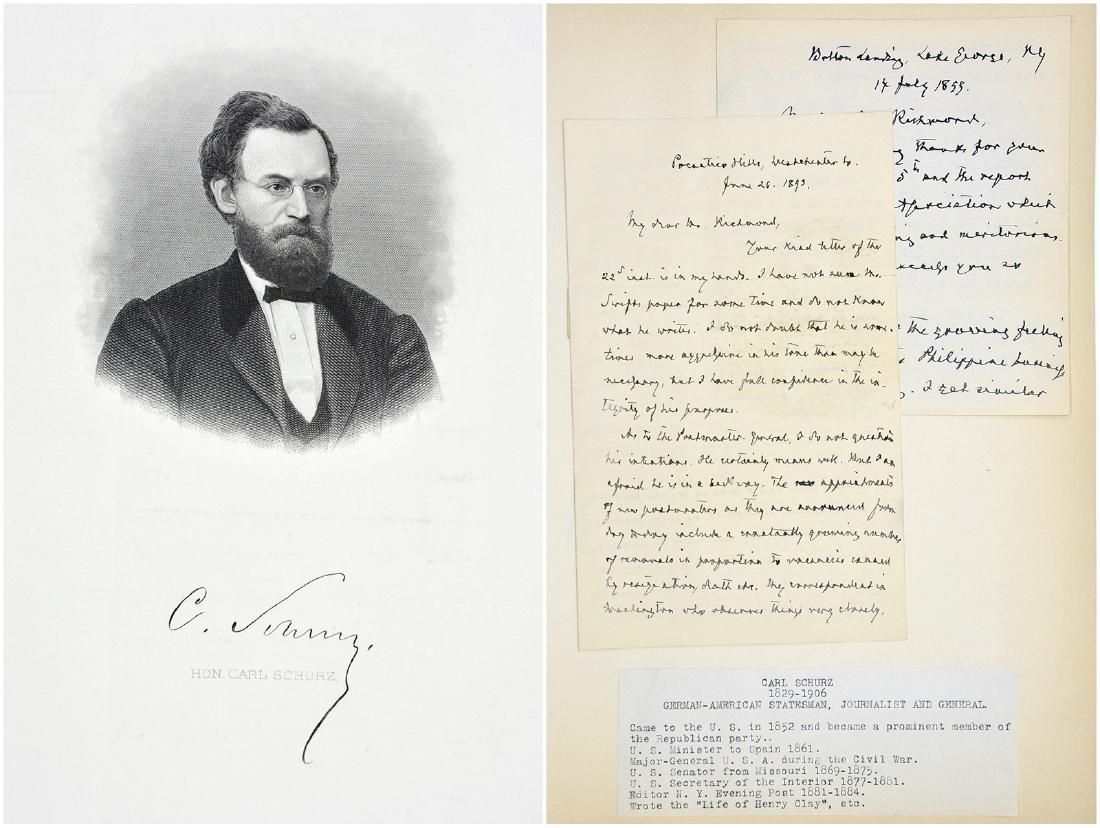 C. Schurz.
HON. CARL SCHURZ.
Bolton Landing, Lake George, NY
14 July 1899.
Richmond,
thanks for your
5th and the report
appreciation which
and meritorious.
you so
the growing feeling
Philippine business
. I get similar
Pocantico Hills, Westchester Co.
June 26. 1899.
My dear Mr. Richmond,
Your kind letter of the
22d inst. is in my hands. I have not seen Mr.
Swift's paper for some time and do not know
what he writes. I do not doubt that he is some-
times more aggressive in his tone than may be
necessary, but I have full confidence in the in-
tegrity of his purposes.
As to the Postmaster-General, I do not question
his intentions. He certainly means well. But I am
afraid he is in a bad way. The appointments
of new postmasters as they are announced from
day to day include a constantly growing number
of removals in proportion to vacancies caused
by resignation, death etc. My correspondent in
Washington who observes things very closely,
CARL SCHURZ
1829-1906
GERMAN-AMERICAN STATESMAN, JOURNALIST AND GENERAL.
Came to the U. S. in 1852 and became a prominent member of
the Republican party..
U. S. Minister to Spain 1861.
Major-General U. S. A. during the Civil War.
U. S. Senator from Missouri 1869-1875.
U. S. Secretary of the Interior 1877-1881.
Editor N. Y. Evening Post 1881-1884.
Wrote the "Life of Henry Clay", etc.